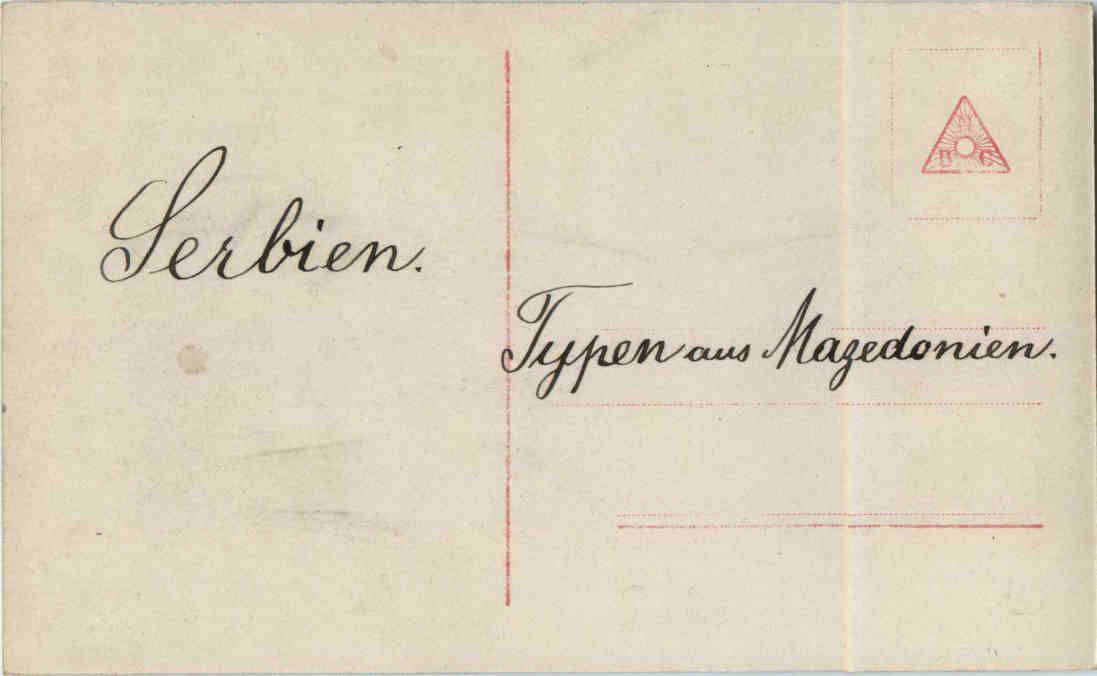 Serbien.
Typen aus Mazedonien.
N
B G